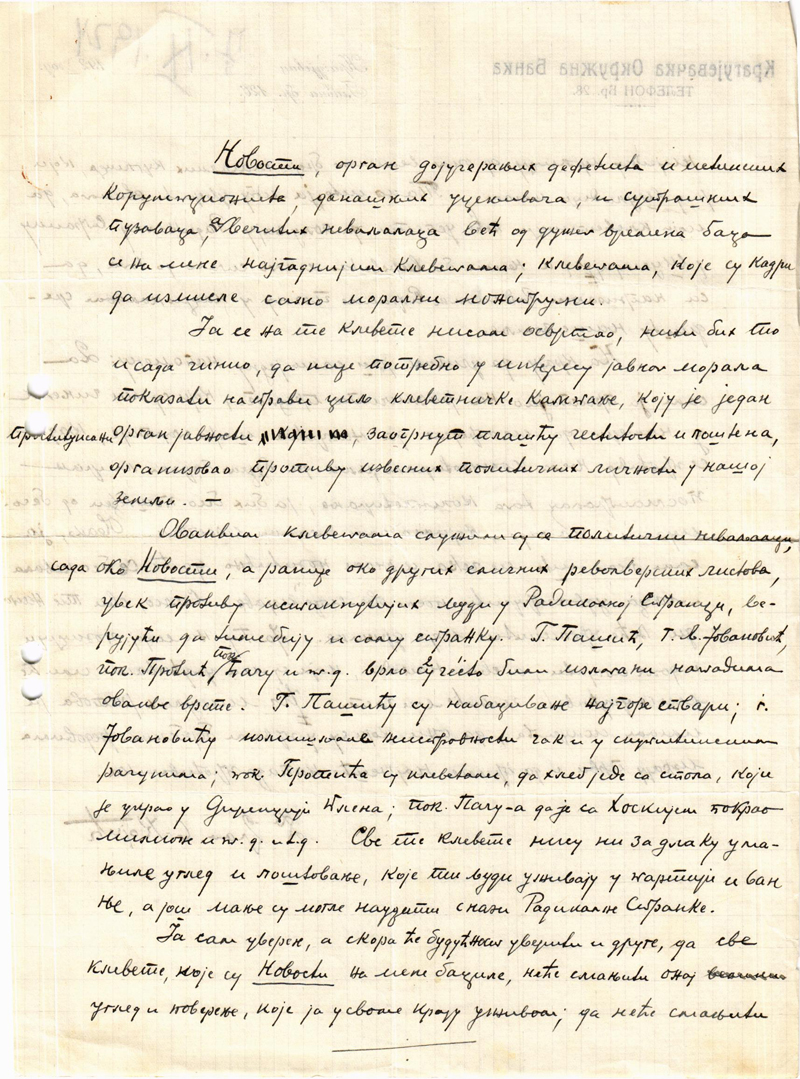 Крагујевачка Окружна Банка
ТЕЛЕФОН Бр. 26.
Новости, орган дојучерањих дефетиста и истинских
корупционишта, данашњих уцењивача, и сутрашњих
пузаваца, увечитих неваљалаца већ од дужег времена баца
се на мене најгаднијим клеветама; клеветама, које су кадри
да измисле само морални
Ја се на те клевете нисам освртао, нити бих то
и сада чинио, да није потребно у интересу јавног морала
показати на прави циљ клеветничке кампање, коју је један
проституисани орган јавности, заогрнут плашту честитости и поштења,
организовао противу извесних политичких личности у нашој
земљи. —
Оваквим клеветама служили су се политички неваљалци,
сада око Новости, а раније око других сличних револверских листова,
увек противу истакнутијих људи у Радикалној Странци, ве-
рујући да тиме бију и саму странку. Г. Пашић, г. Љ. Јовановић,
пок. Протић пок. Пачу и т.д. врло су често били излагани нападима
овакве врсте. Г. Пашићу су набациване најгоре ствари; г.
Јовановићу измишљане неисправности чак и у
рачунима; пок. Протића су клеветали, да хлеб једе са стола, који
је украо у Дирекцији; пок. Пачу-а да је са Хоскијем покрао
милион и т. д. и т.д. Све те клевете нису ни за длаку ума-
њиле углед и поштовање, које ти људи уживају у партији и ван
ње, а још мање су могле наудити снази Радикалне Странке.
Ја сам уверен, а скора ће будућност уверити и друге, да све
клевете, које су Новости на мене бациле, неће смањити онај
углед и поверење, које ја у своме крају уживам; да неће смањити